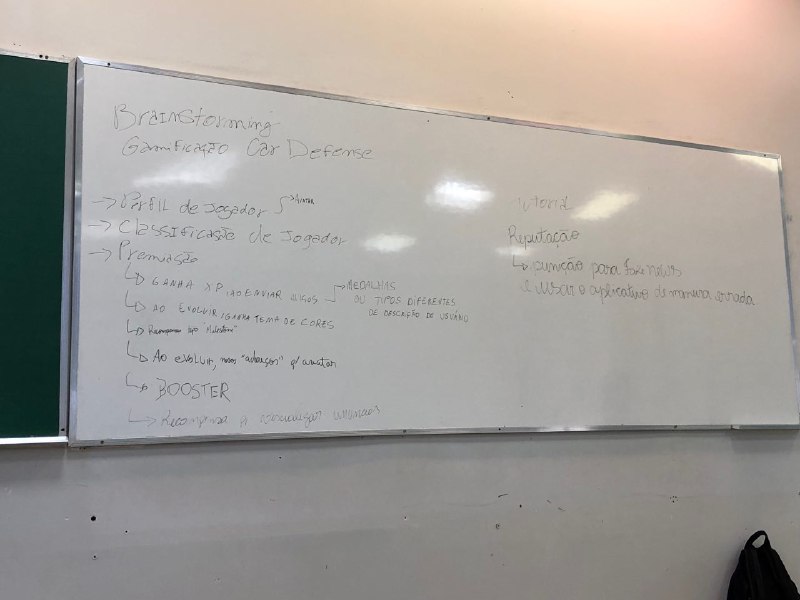 Brainstorming
Gamificação Car Defense
→ Perfil de Jogador
→ Classificação de Jogador
→ Premiação
↳ GANHA XP AO ENVIAR
→ MEDALHAS
OU TIPOS DIFERENTES
DE DESCRIÇÃO DE USUÁRIO
↳ AO EVOLUIR, GANHA TEMA DE CORES
↳ tipo
↳ Ao evoluir, novos p/
↳ BOOSTER
↳ Recompensa
Tutorial
Reputação
↳ punição para fake news
e usar o aplicativo de maneira errada